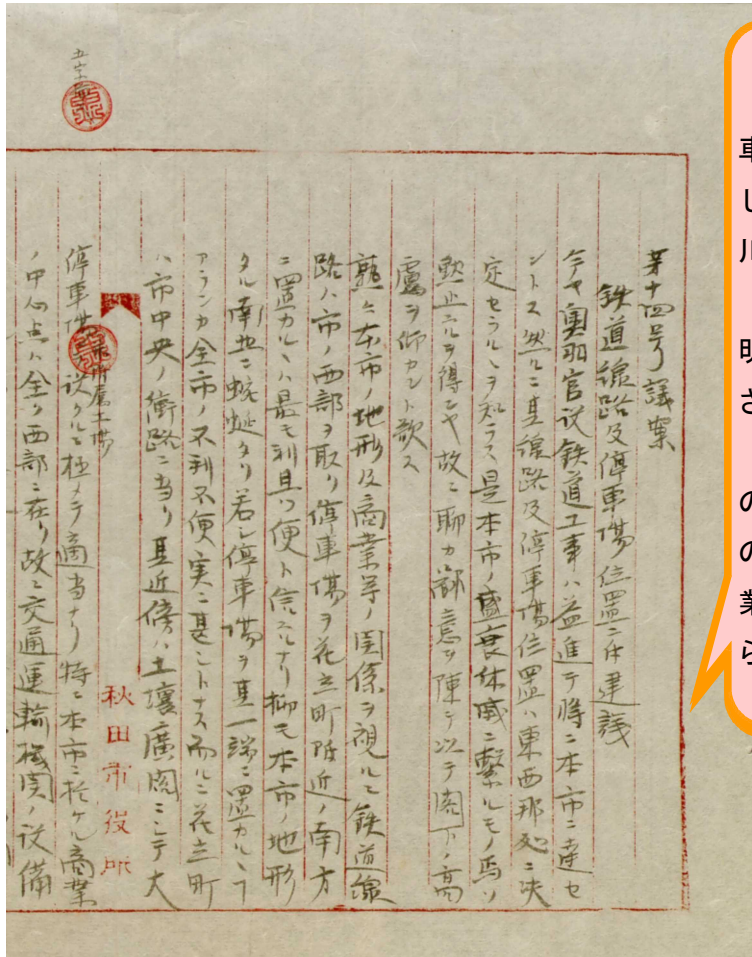 第十四号議案
鉄道線路及停車場位置ニ付建議
今ヤ奥羽官設鉄道工事ハ益進テ将ニ本市ニ達セ
ントス然ルニ其線路及停車場位置ハ東西那処ニ決
定セラルヽヲ知ラス是本市ノ盛衰休戚ニ繋ルモノ焉ソ
黙止スルヲ得ンヤ故ニ聊カ鄙意ヲ陳テ以テ閣下ノ高
慮ヲ仰カント欲ス
熟々本市ノ地形及商業等ノ関係ヲ視ルニ鉄道線
路ハ市ノ西部ヲ取リ停車場ヲ花立町附近ノ南方
ニ置カルヽハ最モ利且ツ便ト信スルナリ抑モ本市ノ地形
タル南北ニ蜿蜒タリ若シ停車場ヲ其一端ニ置カルヽコ
アランカ全市ノ不利不便実ニ甚シトナス而ルニ花立町
ハ市中央ノ衝路ニ当リ其近傍ハ土壌廣闊ニシテ大
停車場
所属工場
設クルニ極メテ適当ナリ特ニ本市ニ於ケル商業
ノ中心点ハ全ク西部ニ在リ故ニ交通運輸機関ノ設備
秋田市役所
五字
車
し
川
明
さ
の
の
業
ら